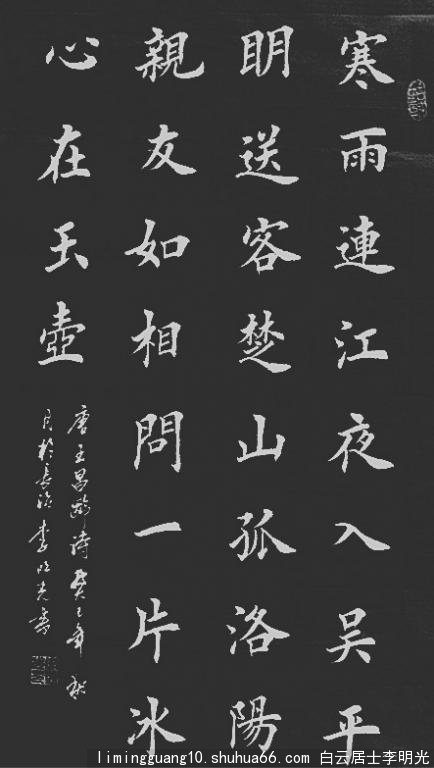 寒雨連江夜入吴平
明送客楚山孤洛陽
親友如相問一片冰
心在玉壺
唐王昌齡詩癸巳年秋
月於長治李明光書
limingguang10.shuhua66.com 白云居士李明光